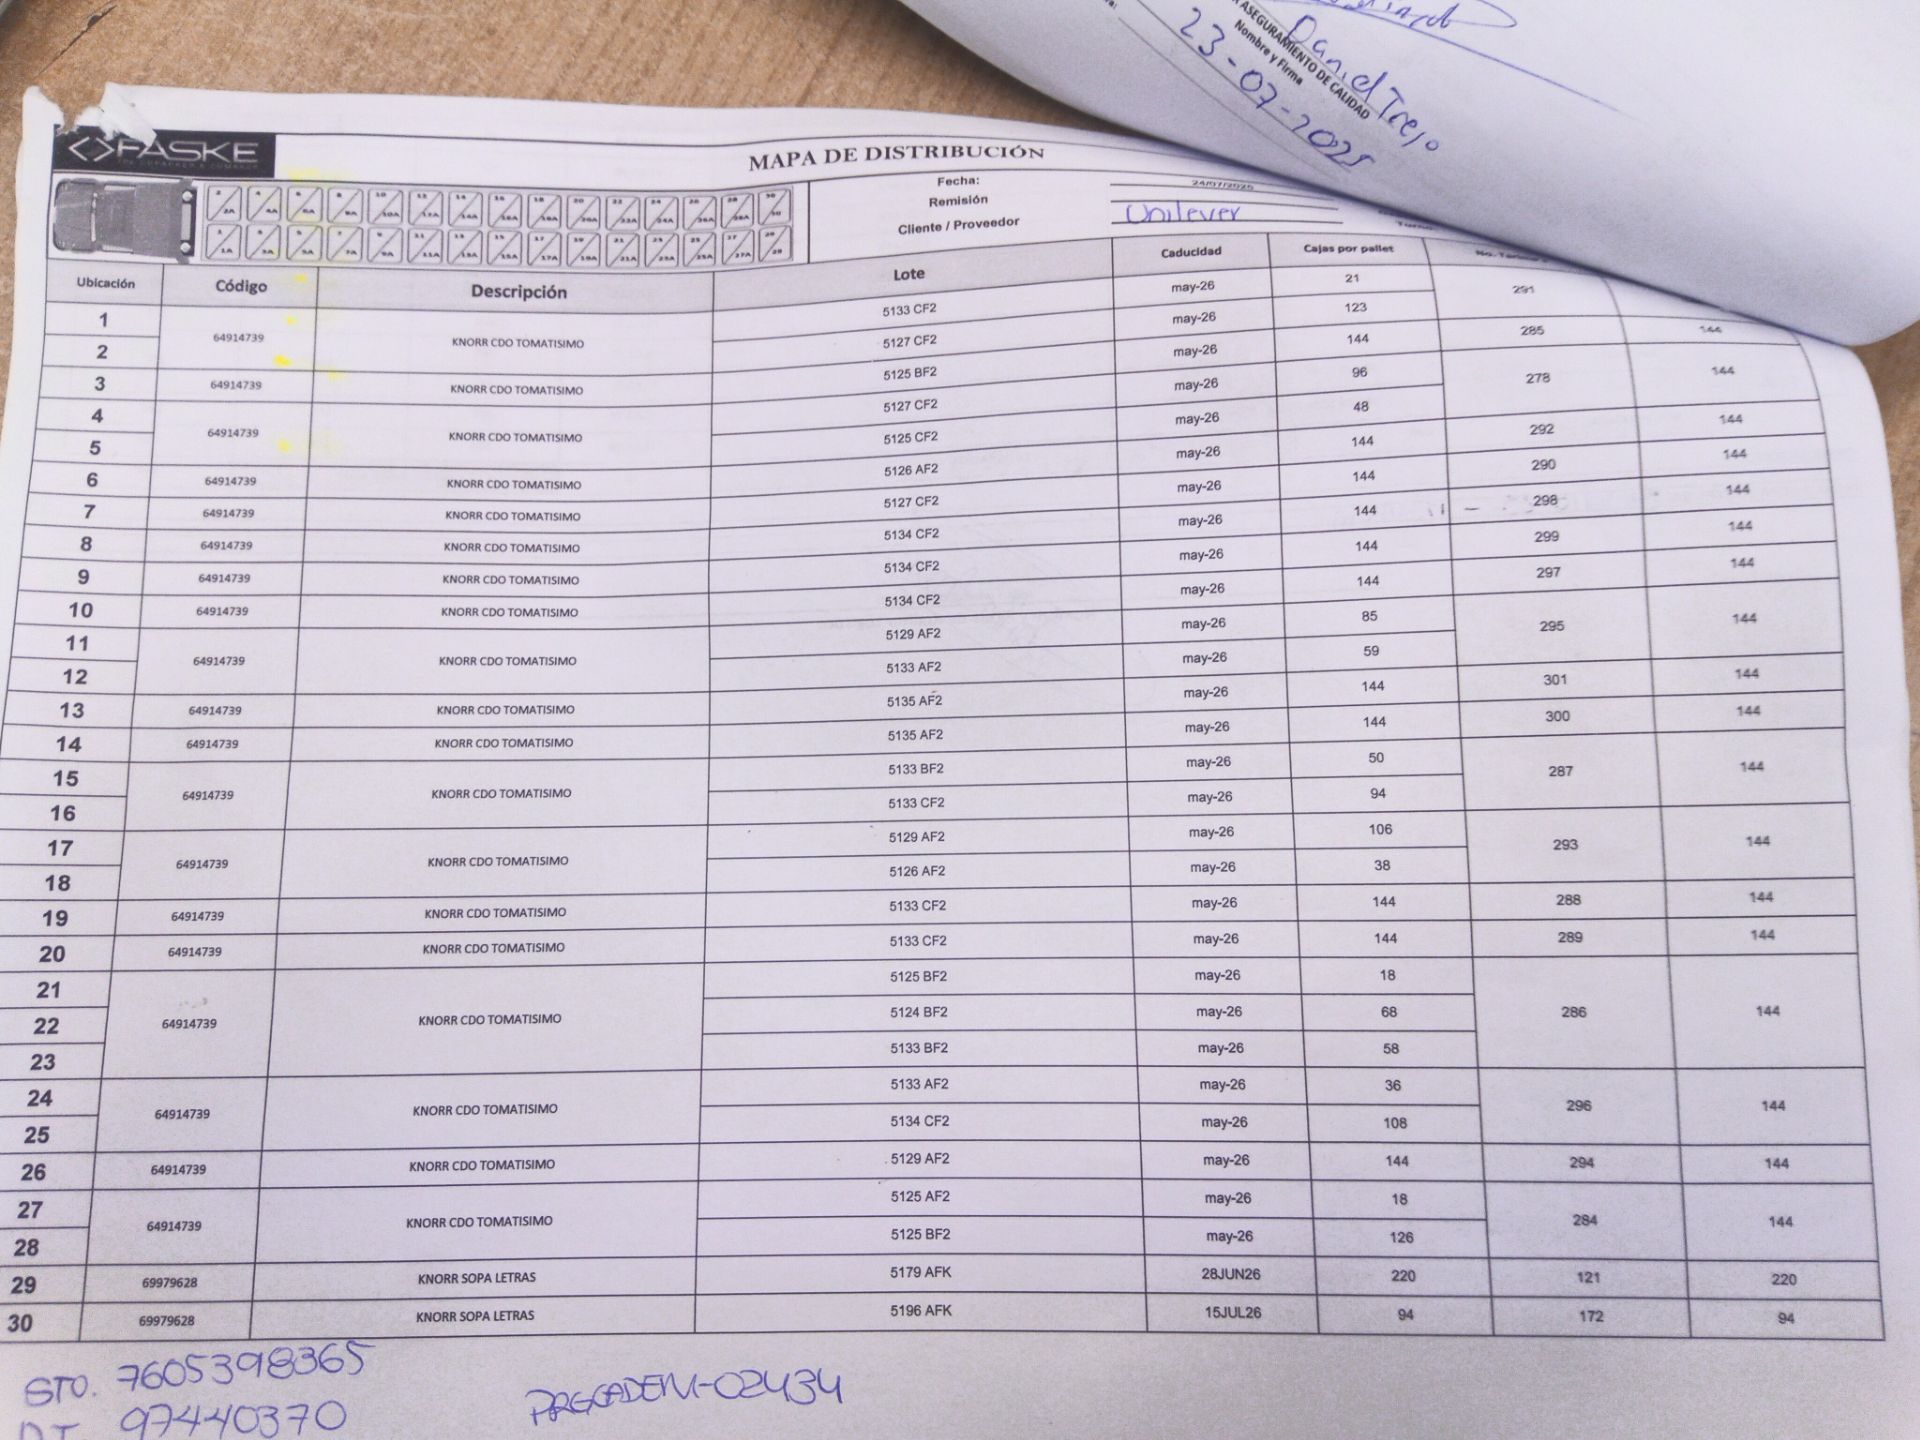 ASEGURAMIENTO DE CALIDAD
Nombre y Firma
Daniel Trejo
23-07-2025
PASKE
MAPA DE DISTRIBUCIÓN
Fecha: 24/07/2025
Remisión
Cliente / Proveedor Unilever
Ubicación Código Descripción Lote Caducidad Cajas por pallet
1 64914739 KNORR CDO TOMATISIMO 5133 CF2 may-26 21 291
2 5127 CF2 may-26 123
3 64914739 KNORR CDO TOMATISIMO 5125 BF2 may-26 144 285 144
4 64914739 KNORR CDO TOMATISIMO 5127 CF2 may-26 96 278 144
5 5125 CF2 may-26 48
6 64914739 KNORR CDO TOMATISIMO 5126 AF2 may-26 144 292 144
7 64914739 KNORR CDO TOMATISIMO 5127 CF2 may-26 144 290 144
8 64914739 KNORR CDO TOMATISIMO 5134 CF2 may-26 144 298 144
9 64914739 KNORR CDO TOMATISIMO 5134 CF2 may-26 144 299 144
10 64914739 KNORR CDO TOMATISIMO 5134 CF2 may-26 144 297 144
11 64914739 KNORR CDO TOMATISIMO 5129 AF2 may-26 85 295 144
12 5133 AF2 may-26 59
13 64914739 KNORR CDO TOMATISIMO 5135 AF2 may-26 144 301 144
14 64914739 KNORR CDO TOMATISIMO 5135 AF2 may-26 144 300 144
15 64914739 KNORR CDO TOMATISIMO 5133 BF2 may-26 50 287 144
16 5133 CF2 may-26 94
17 64914739 KNORR CDO TOMATISIMO 5129 AF2 may-26 106 293 144
18 5126 AF2 may-26 38
19 64914739 KNORR CDO TOMATISIMO 5133 CF2 may-26 144 288 144
20 64914739 KNORR CDO TOMATISIMO 5133 CF2 may-26 144 289 144
21 5125 BF2 may-26 18
22 64914739 KNORR CDO TOMATISIMO 5124 BF2 may-26 68 286 144
23 5133 BF2 may-26 58
24 64914739 KNORR CDO TOMATISIMO 5133 AF2 may-26 36 296 144
25 5134 CF2 may-26 108
26 64914739 KNORR CDO TOMATISIMO 5129 AF2 may-26 144 294 144
27 64914739 KNORR CDO TOMATISIMO 5125 AF2 may-26 18 284 144
28 5125 BF2 may-26 126
29 69979628 KNORR SOPA LETRAS 5179 AFK 28JUN26 220 121 220
30 69979628 KNORR SOPA LETRAS 5196 AFK 15JUL26 94 172 94
STO. 7605398365
97440370